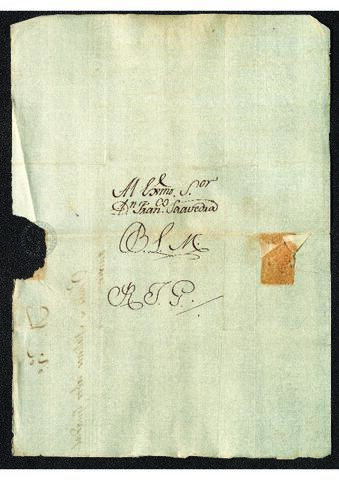 Al Exmo. S.or
Dn. Franco. Saavedra
B. L. M.
R. J. G.